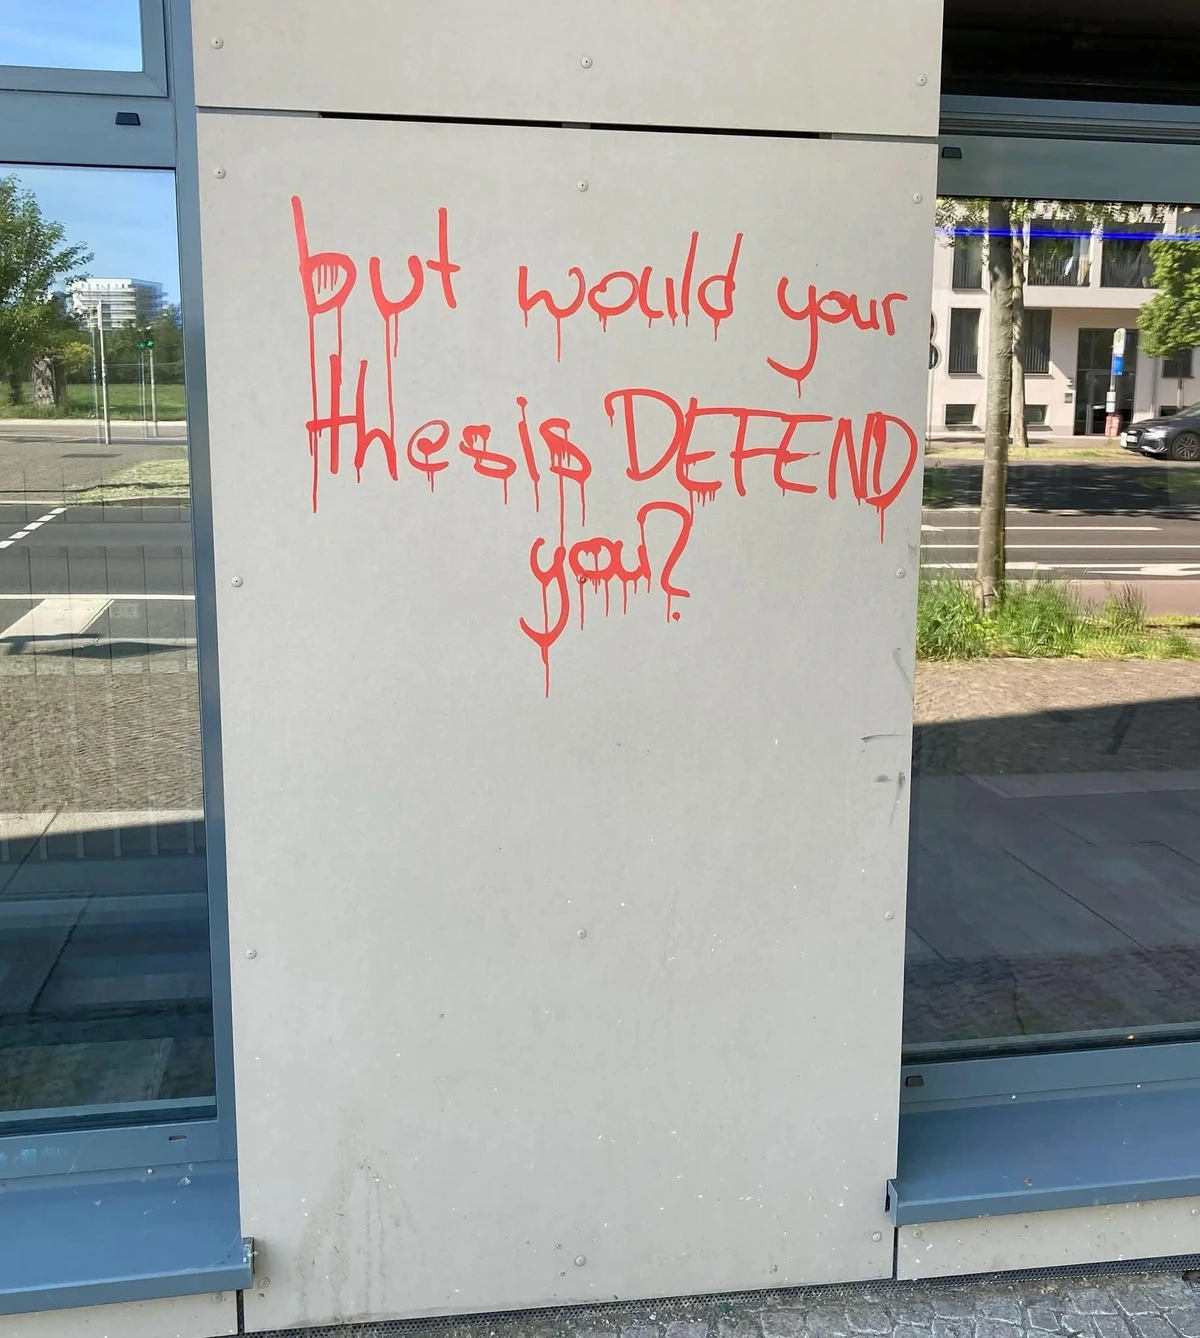 but would your
thesis DEFEND
you?